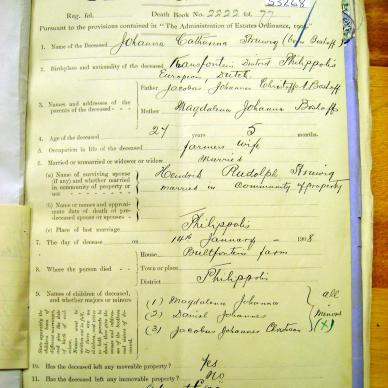 33268
Reg. fol. Death Book No. 2222 fd. 77
Pursuant to the provisions contained in "The Administration of Estates Ordinance,
1. Name of the Deceased Johanna Catharina Struwig (born Boshoff
2. Birthplace and nationality of the deceased Kransfontein District Philippolis
European, Dutch
3. Names and addresses of the parents of the deceased Father Jacobus Johannes Christoffel Boshoff
Mother Magdalena Johanna Boshoff
4. Age of the deceased 27 years 5 months.
5. Occupation in life of the deceased farmers wife
6. Married or unmarried or widower or widow Married
(a) Name of surviving spouse (if any) and whether married in community of property or not Hendrik Rudolph Struwig
married in community of property
(b) Name or names and approximate date of death of predeceased spouse or spouses
(c) Place of last marriage Philippolis
7. The day of the decease on 14th January 1908
8. Where the person died House Bultfontein farm
Town or place
District Philippolis
9. Names of children of deceased, and whether majors or minors
(1) Magdalena Johanna
(2) Daniel Johannes
(3) Jacobus Johannes
all
(X)
10. Has the deceased left any movable property? Yes
11. Has the deceased left any immovable property? No